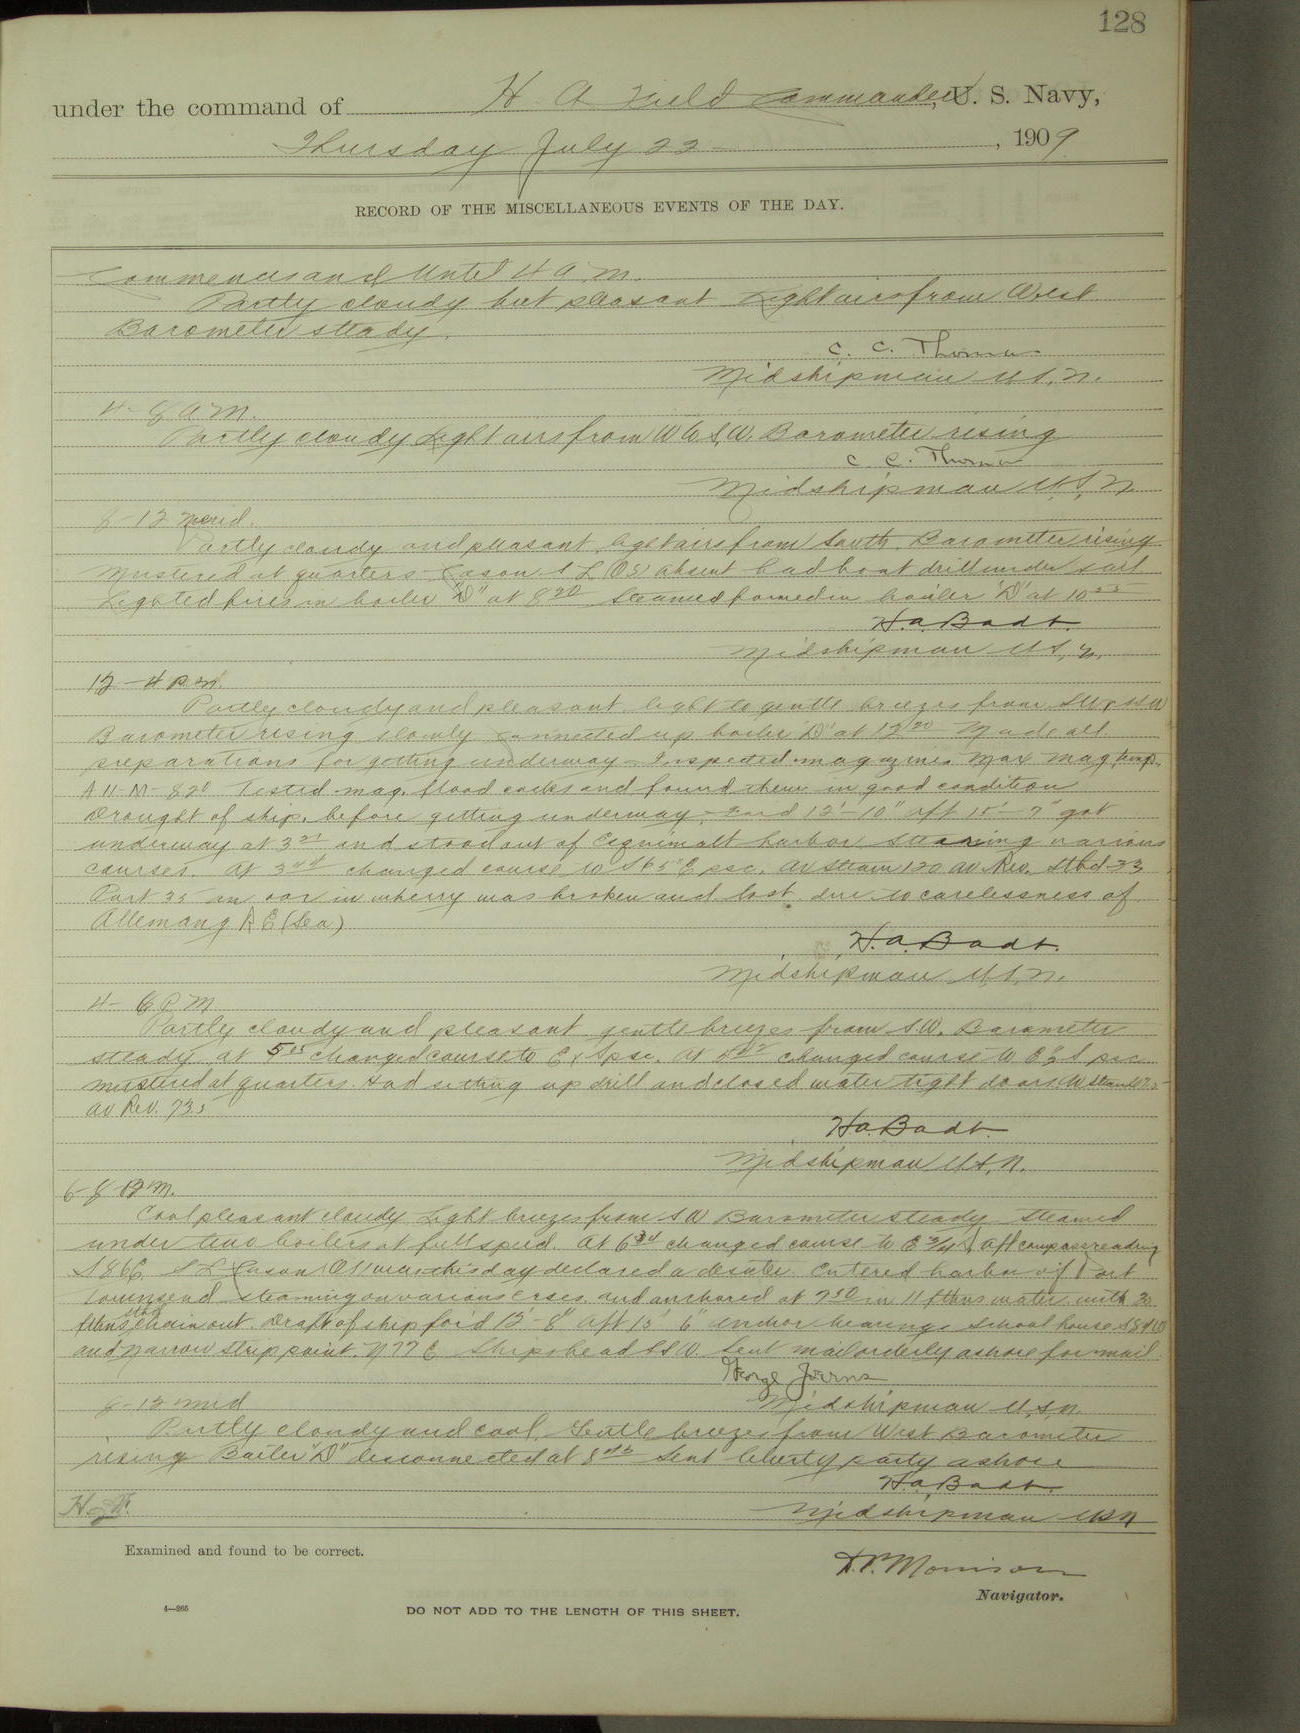 128
under the command of H A Field Commander, U. S. Navy,
Thursday July 22, 1909
RECORD OF THE MISCELLANEOUS EVENTS OF THE DAY.
Commences and Until 4 A.M.
Partly cloudy but pleasant Light airs from West
Barometer steady.
C. C. Thomas
Midshipman U.S.N.
4- 8 A M.
Partly cloudy Light airs from W & S.W. Barometer rising
C. C. Thomas
Midshipman U.S.N
8-12 Merid.
Partly cloudy and pleasant. Light airs from South. Barometer rising
Mustered at quarters Cason S L (OS) absent Had boat drill under sail
Lighted fires in boiler "D" at 8 20 Steamed formed in boiler "D" at 10
H.A. Badt.
Midshipman U.S.N.
12 - 4 P.M.
Partly cloudy and pleasant. light to gentle breezes from
Barometer rising slowly Connected up boiler "D" at 12 Made all
preparations for getting underway - Inspected magazines Max Mag temp.
82° Tested mag. flood cocks and found them in good condition
Draught of ship, before getting underway, 12'-10" aft 15'- got
underway at 3 and stood out of Esquimalt harbor steaming various
courses. At 3 changed course to S 65° E psc. Av Steam 120 av Rev. Stbd 33
Port 35 an oar in wherry was broken and lost due to carelessness of
Allemang R E (Sea)
H.A. Badt.
Midshipman U.S.N.
4- 6 P M
Partly cloudy and pleasant gentle breezes from S.W. Barometer
steady at 5 changed course to psc. At changed course to psc
mustered at quarters. Had setting up drill and closed water tight doors. Av Steam
av Rev. 73.5
H.A. Badt.
Midshipman U.S.N.
6-8 P.M.
Cool pleasant cloudy Light breezes from S W Barometer steady Steamed
under two boilers at full speed. At 6 changed course to E 3/4 S aft compass reading
S 86 E. S L Cason (OS) was this day declared a deserter. Entered harbor of Port
Townsend steaming on various crses. and anchored at 7 50 in 11 fthms water with 30
fthms stbd chain out. Draft of ship for'd 12'-8" aft 15' 6" anchor bearings School house
and Marrow Stone point. N 77 E Ships head Sent mail orderly ashore for mail.
George Joerns
Midshipman U.S.N.
8-12 Mid
Partly cloudy and cool. Gentle breezes from West Barometer
rising Boiler "D" disconnected at 8 Sent liberty party ashore
H.A. Badt.
Midshipman USN
Examined and found to be correct.
Morrison
Navigator.
4—265
DO NOT ADD TO THE LENGTH OF THIS SHEET.